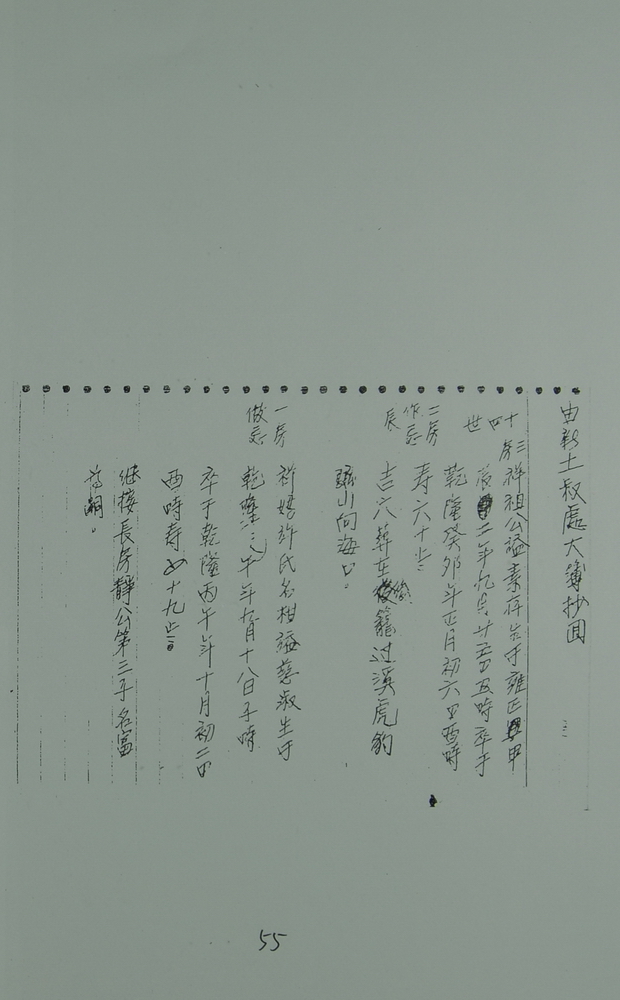 由新土叔處大簿抄回
十四世
三房 祥祖公謚素存生于雍正甲
二年九月廿五日五時卒于
乾隆癸卯年正月初六日酉時
二房作忌 寿六十止
辰 吉穴葬在後籠过溪虎豹
山向海口。
一房做忌 祥媲許氏名柑謚慈淑生于
乾隆年九月十八日子時
卒于乾隆丙午年十月初二日
酉時寿十九止
继接長房靜公第三子名富
為嗣。
55